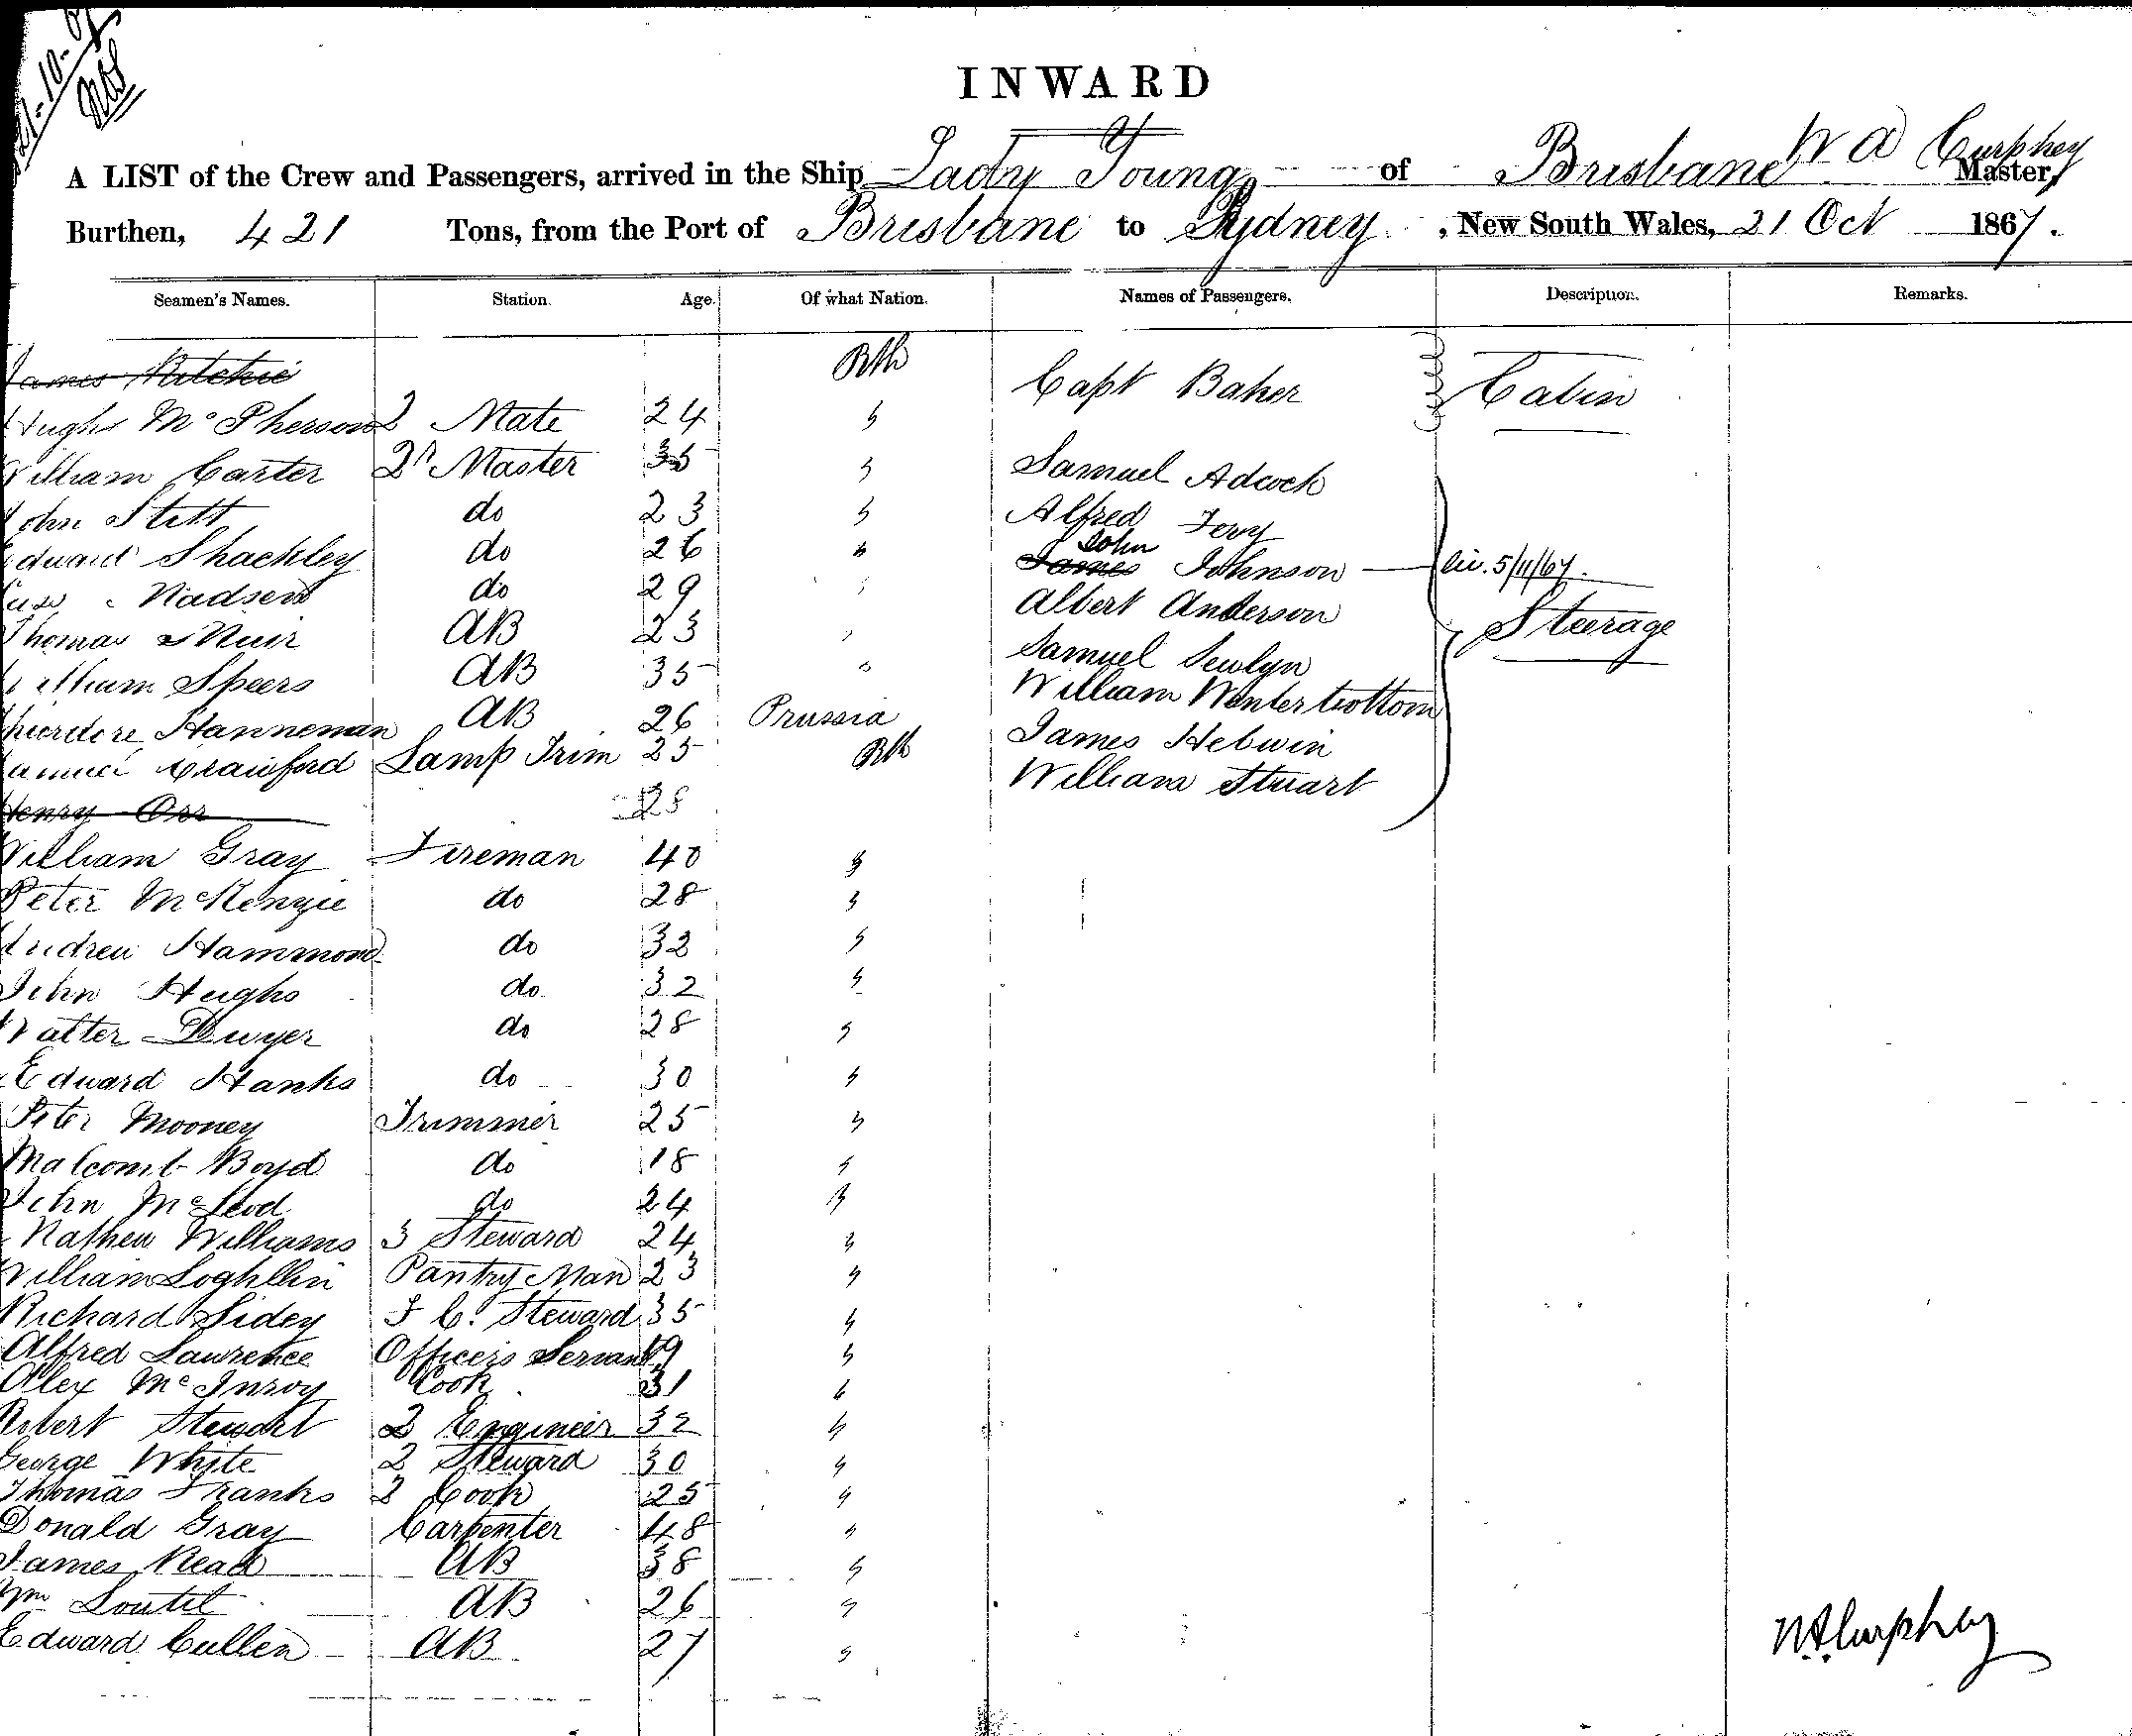 INWARD
A LIST of the Crew and Passengers, arrived in the Ship Lady Young of Brisbane W A Curphey Master,
Burthen, 421 Tons, from the Port of Brisbane to Sydney, New South Wales, 21 Oct 1867.
Seamen's Names. Station. Age. Of what Nation. Names of Passengers. Description. Remarks.
James Ritchie Bth Capt Baker Cabin
Hugh McPherson 2 Mate 24 "
William Carter 2r Master 35 " Samuel Adcock
John Stitt do 23 " Alfred
Edward Shackley do 26 " John
James Johnson
Madsen do 29 " Albert Anderson
Thomas Muir AB 23 " Steerage
William Speers AB 35 " Samuel
Hanneman AB 26 Prussia William Winterbottom
Samuel Crawford Lamp Trim 25 Bth James
Henry Orr 28 William Stuart
William Gray Fireman 40 "
Peter McKenzie do 28 "
Andrew Hammond do 32 "
John Hughs do 32 "
Walter Dwyer do 28 "
Edward Hanks do 30 "
Peter Mooney Trimmer 25 "
Malcomb Boyd do 18 "
John McLeod do 24 "
Mathew Williams 3 Steward 24 "
William Loghllin Pantry Man 23 "
Richard Sidey F C. Steward 35 "
Alfred Lawrence Officers Servant 19 "
Alex McInroy Cook 31 "
Robert Stewart 2 Engineer 32 "
George White 2 Steward 30 "
Thomas Franks 2 Cook 25 "
Donald Gray Carpenter 48 "
James Read AB 38 "
Wm Loutit AB 26 "
Edward Cullen AB 27 "
WACurphey